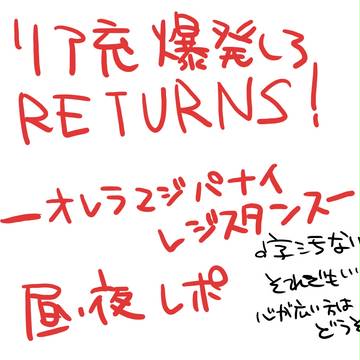 リア充爆発しろ
RETURNS!
ーオレラマジパナイ
レジスタンスー
昼・夜レポ
字汚ない
それでもいい
心が広い方は
どうぞ